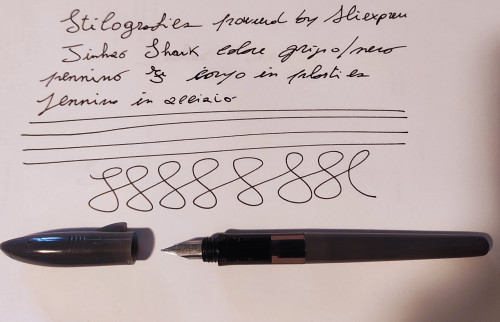 Stilografica powered by Aliexpress
Jinhao Shark colore grigio/nero
pennino corpo in plastica
pennino in acciaio